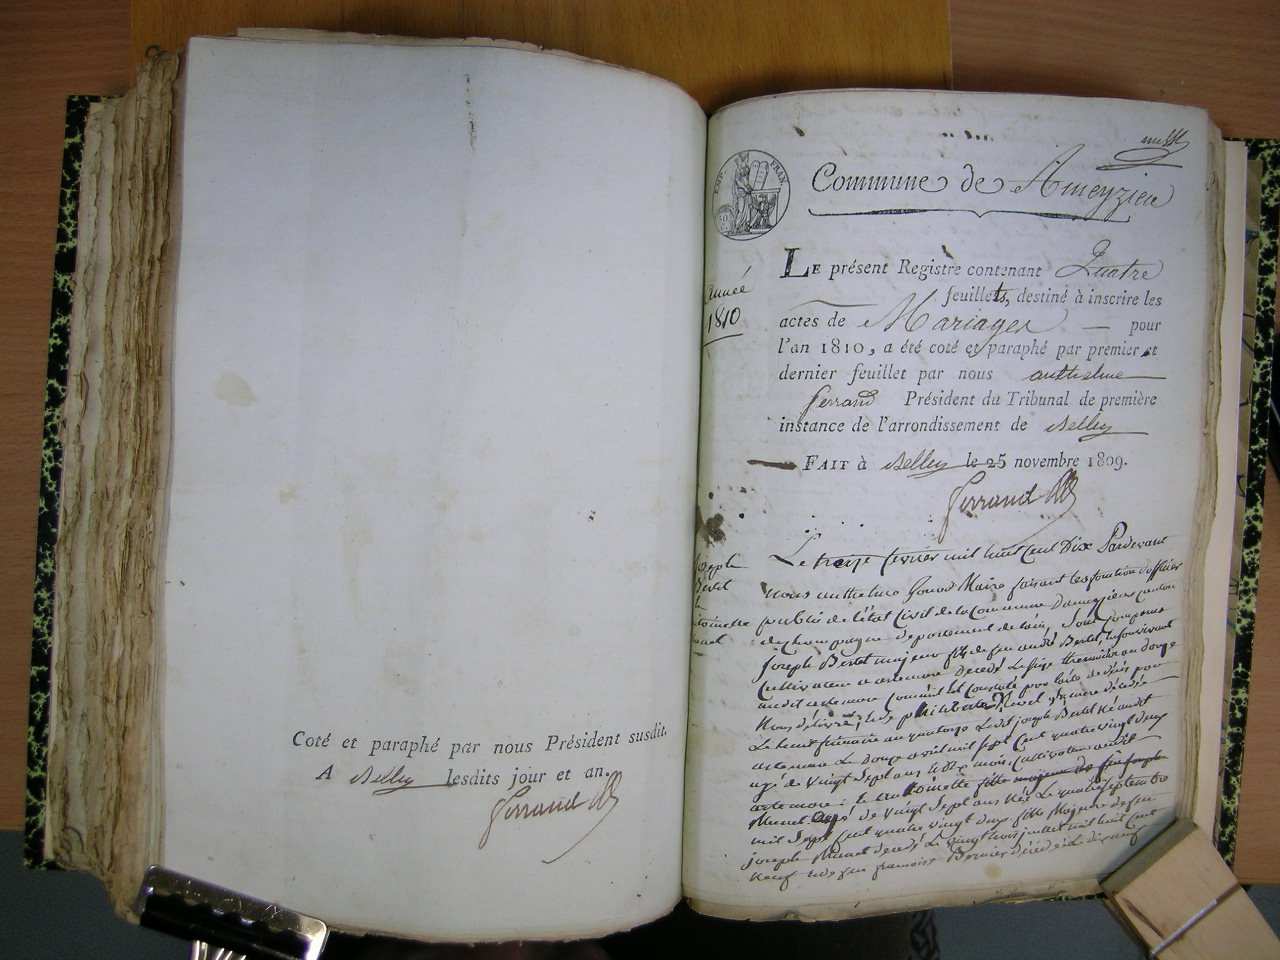 Coté et paraphé par nous Président susdit.
A Belley lesdits jour et an.
Ferrand
IMP. FRAN.
Commune de Ameyzieu
Année
1810
LE présent Registre contenant Quatre
feuillets, destiné à inscrire les
actes de Mariages pour
l'an 1810, a été coté et paraphé par premier et
dernier feuillet par nous anthelme
ferrand Président du Tribunal de première
instance de l'arrondissement de Belley
FAIT à Belley le 25 novembre 1809.
Ferrand
Joseph
Bertet
antoinette
Le treize fevrier mil huit Cent Dix Pardevant
nous anthelme Maire faisant les fonction d'officier
public de l'état Civil de la Commune d'ameyzieu canton
de Champagne departement de lain, Sont
Joseph Bertet majeur fils de feu andré Bertet,
Cultivateur a artemare decedé Le thermidor an douze
audit artemare Comme constaté par
nous
Le frimaire an quatorze Ledit joseph Bertet Né audit
artemare Le Douze avril mil sept Cent quatre vingt deux
agé de Vingt Sept ans mois Cultivateur audit
artemare; et antoinette fille majeure de feu joseph
agée de Vingt Sept ans Née Le quatre Septembre
mil Sept Cent quatre vingt Deux fille Majeure de feu
joseph decedé Le Vingt trois juillet mil huit Cent
neuf feu françoise decedée Le